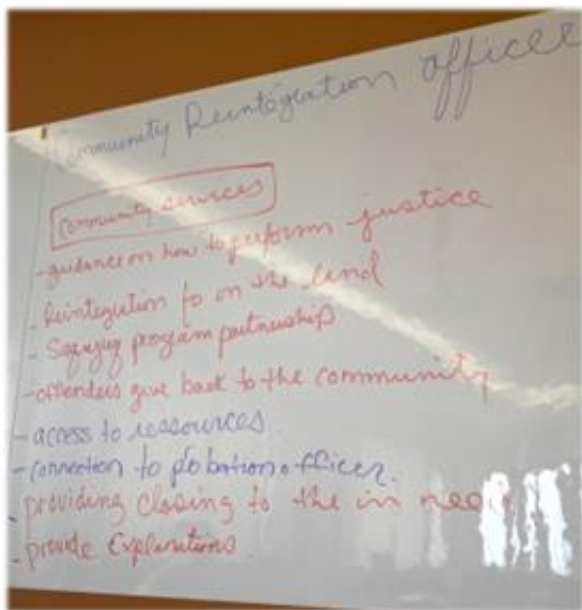 Community Reintegration officer
Community services
- guidance on how to perform justice
- Reintegration to on the land
- program partnerships
- offenders give back to the community
- access to ressources
- connection to probation officer.
- providing closing to the in need
- provide Explanations